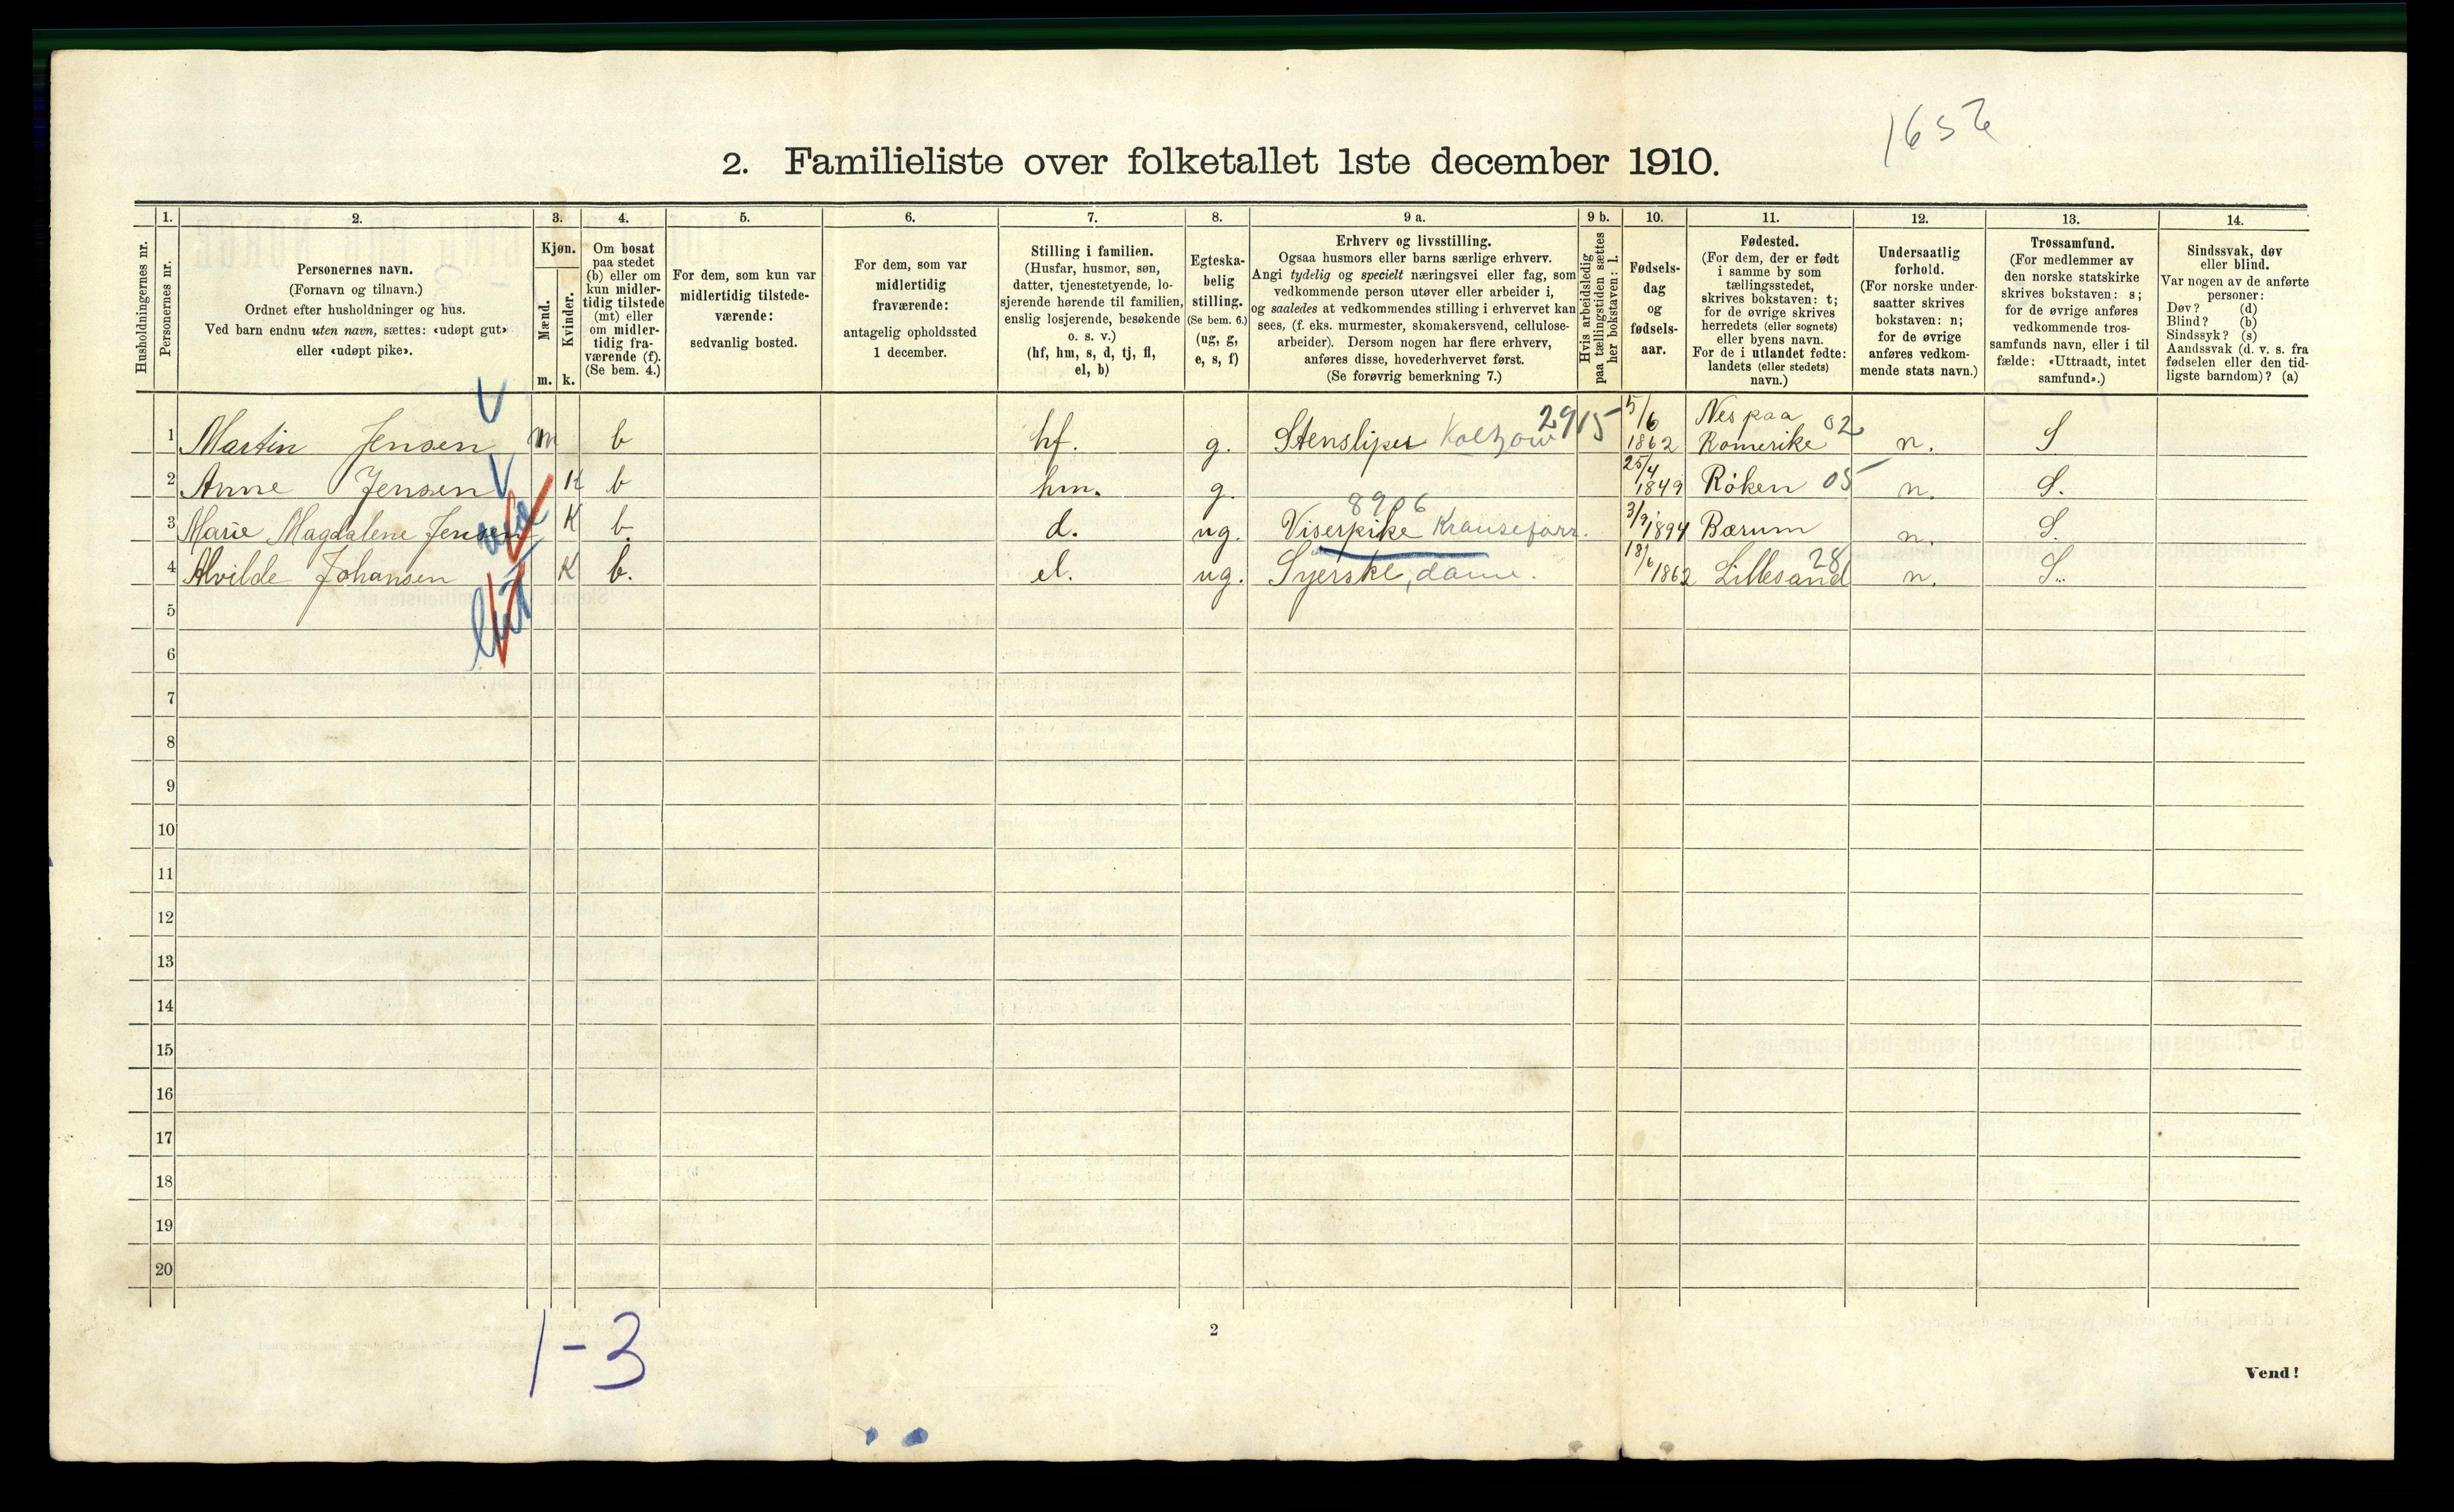 1652
2. Familieliste over folketallet 1ste december 1910.
Husholdningernes nr.
1.
Personernes nr.
2.
Personernes navn.
(Fornavn og tilnavn.)
Ordnet efter husholdninger og hus.
Ved barn endnu uten navn, sættes: «udøpt gut»
eller «udøpt pike».
3.
Kjøn.
Mænd.
Kvinder.
m. k.
4.
Om bosat
paa stedet
(b) eller om
kun midler-
tidig tilstede
(mt) eller
om midler-
tidig fra-
værende (f).
(Se bem. 4.)
5.
For dem, som kun var
midlertidig tilstede-
værende:
sedvanlig bosted.
6.
For dem, som var
midlertidig
fraværende:
antagelig opholdssted
1 december.
7.
Stilling i familien.
(Husfar, husmor, søn,
datter, tjenestetyende, lo-
sjerende hørende til familien,
enslig losjerende, besøkende
o. s. v.)
(hf, hm, s, d, tj, fl,
el, b)
8.
Egteska-
belig
stilling.
(Se bem. 6.)
(ug, g,
e, s, f)
9 a.
Erhverv og livsstilling.
Ogsaa husmors eller barns særlige erhverv.
Angi tydelig og specielt næringsvei eller fag, som
vedkommende person utøver eller arbeider i,
og saaledes at vedkommendes stilling i erhvervet kan
sees, (f. eks. murmester, skomakersvend, cellulose-
arbeider). Dersom nogen har flere erhverv,
anføres disse, hovederhvervet først.
(Se forøvrig bemerkning 7.)
9 b.
Hvis arbeidsledig
paa tællingstiden sættes
her bokstaven: l.
10.
Fødsels-
dag
og
fødsels-
aar.
11.
Fødested.
(For dem, der er født
i samme by som
tællingsstedet,
skrives bokstaven: t;
for de øvrige skrives
herredets (eller sognets)
eller byens navn.
For de i utlandet fødte:
landets (eller stedets)
navn.)
12.
Undersaatlig
forhold.
(For norske under-
saatter skrives
bokstaven: n;
for de øvrige
anføres vedkom-
mende stats navn.)
13.
Trossamfund.
(For medlemmer av
den norske statskirke
skrives bokstaven: s;
for de øvrige anføres
vedkommende tros-
samfunds navn, eller i til-
fælde: «Uttraadt, intet
samfund».)
14.
Sindssvak, døv
eller blind.
Var nogen av de anførte
personer:
Døv? (d)
Blind? (b)
Sindssyk? (s)
Aandssvak (d. v. s. fra
fødselen eller den tid-
ligste barndom)? (a)
1 Martin Jensen m b hf. g. Stensliper 2915 5/6 1862 Nes paa Romerike 02 n. S
2 Anne Jensen K b hm. g. 25/4 1849 Røken 05 n. S.
3 Marie Magdalene Jensen K b. d. ug. Viserpike 8906 3/9 1894 Bærum n. S.
4 Alvilde Johansen K b. el. ug. Syerske, dame. 18/6 1862 Lillesand 28 n. S.
5
6
7
8
9
10
11
12
13
14
15
16
17
18
19
20
1-3
2
Vend!